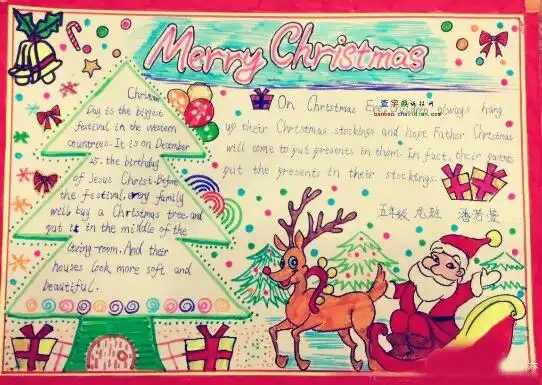 Merry Christmas
Christmas
Day is the biggest
festival in the western
countries. It is on December
25, the birthday
of Jesus Christ. Before
the festival, every family
will buy a Christmas tree and
put it in the middle of the
living-room. And their
houses look more soft and
beautiful.
On Christmas Eve, always hang
up their Christmas stockings and hope Father Christmas
will come to put presents in them. In fact, their parents
put the presents in their stockings.
五年级 九班